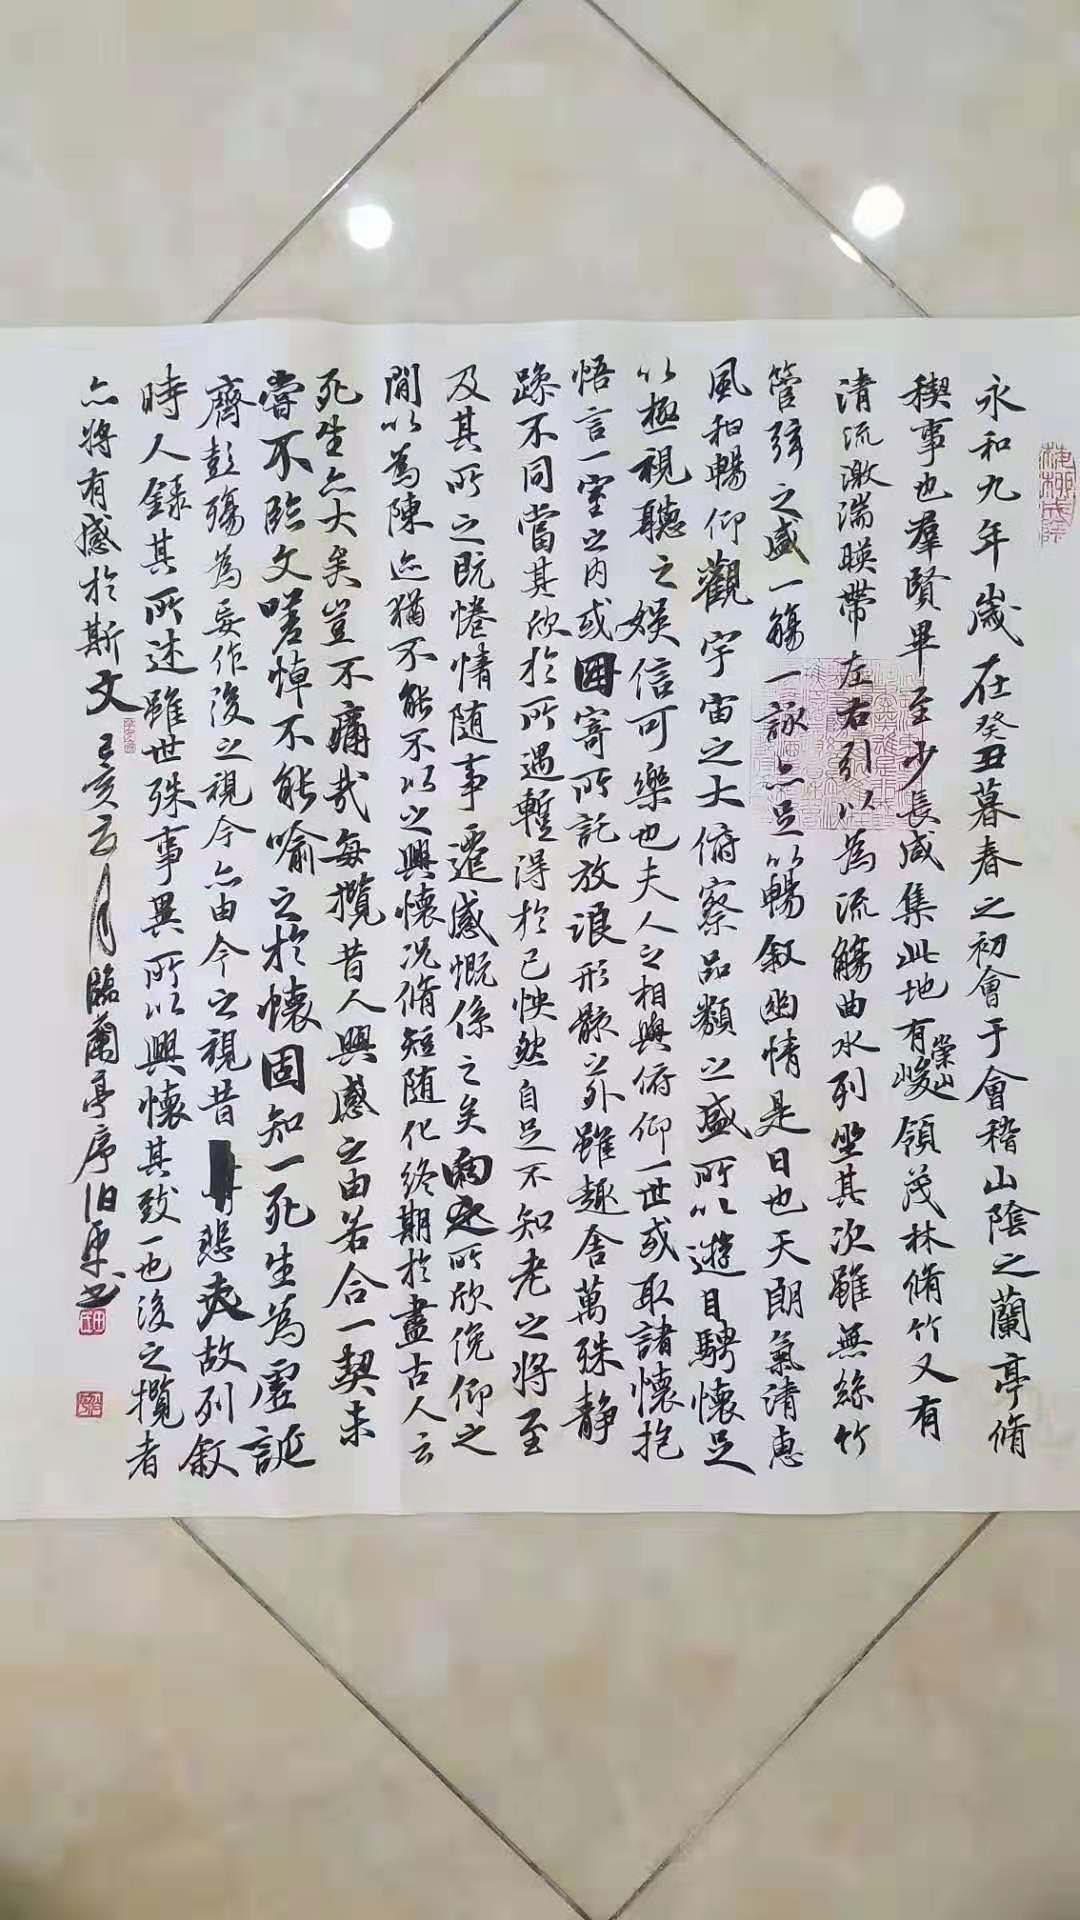 永和九年歲在癸丑暮春之初會于會稽山陰之蘭亭脩
稧事也羣賢畢至少長咸集此地有崇山峻領茂林脩竹又有
清流激湍暎帶左右引以為流觴曲水列坐其次雖無絲竹
管弦之盛一觴一詠亦足以暢敘幽情是日也天朗氣清惠
風和暢仰觀宇宙之大俯察品類之盛所以遊目騁懷足
以極視聽之娛信可樂也夫人之相與俯仰一世或取諸懷抱
悟言一室之內或因寄所託放浪形骸之外雖趣舍萬殊静
躁不同當其欣於所遇暫得於己怏然自足不知老之將至
及其所之既惓情随事遷感慨係之矣向之所欣俛仰之
間以為陳迹猶不能不以之興懷況脩短随化終期於盡古人云
死生亦大矣豈不痛哉每攬昔人興感之由若合一契未
嘗不臨文嗟悼不能喻之於懷固知一死生為虛誕
齊彭殤為妄作後之視今亦由今之視昔悲夫故列敘
時人錄其所述雖世殊事異所以興懷其致一也後之攬者
亦將有感於斯文
己亥月臨蘭亭序